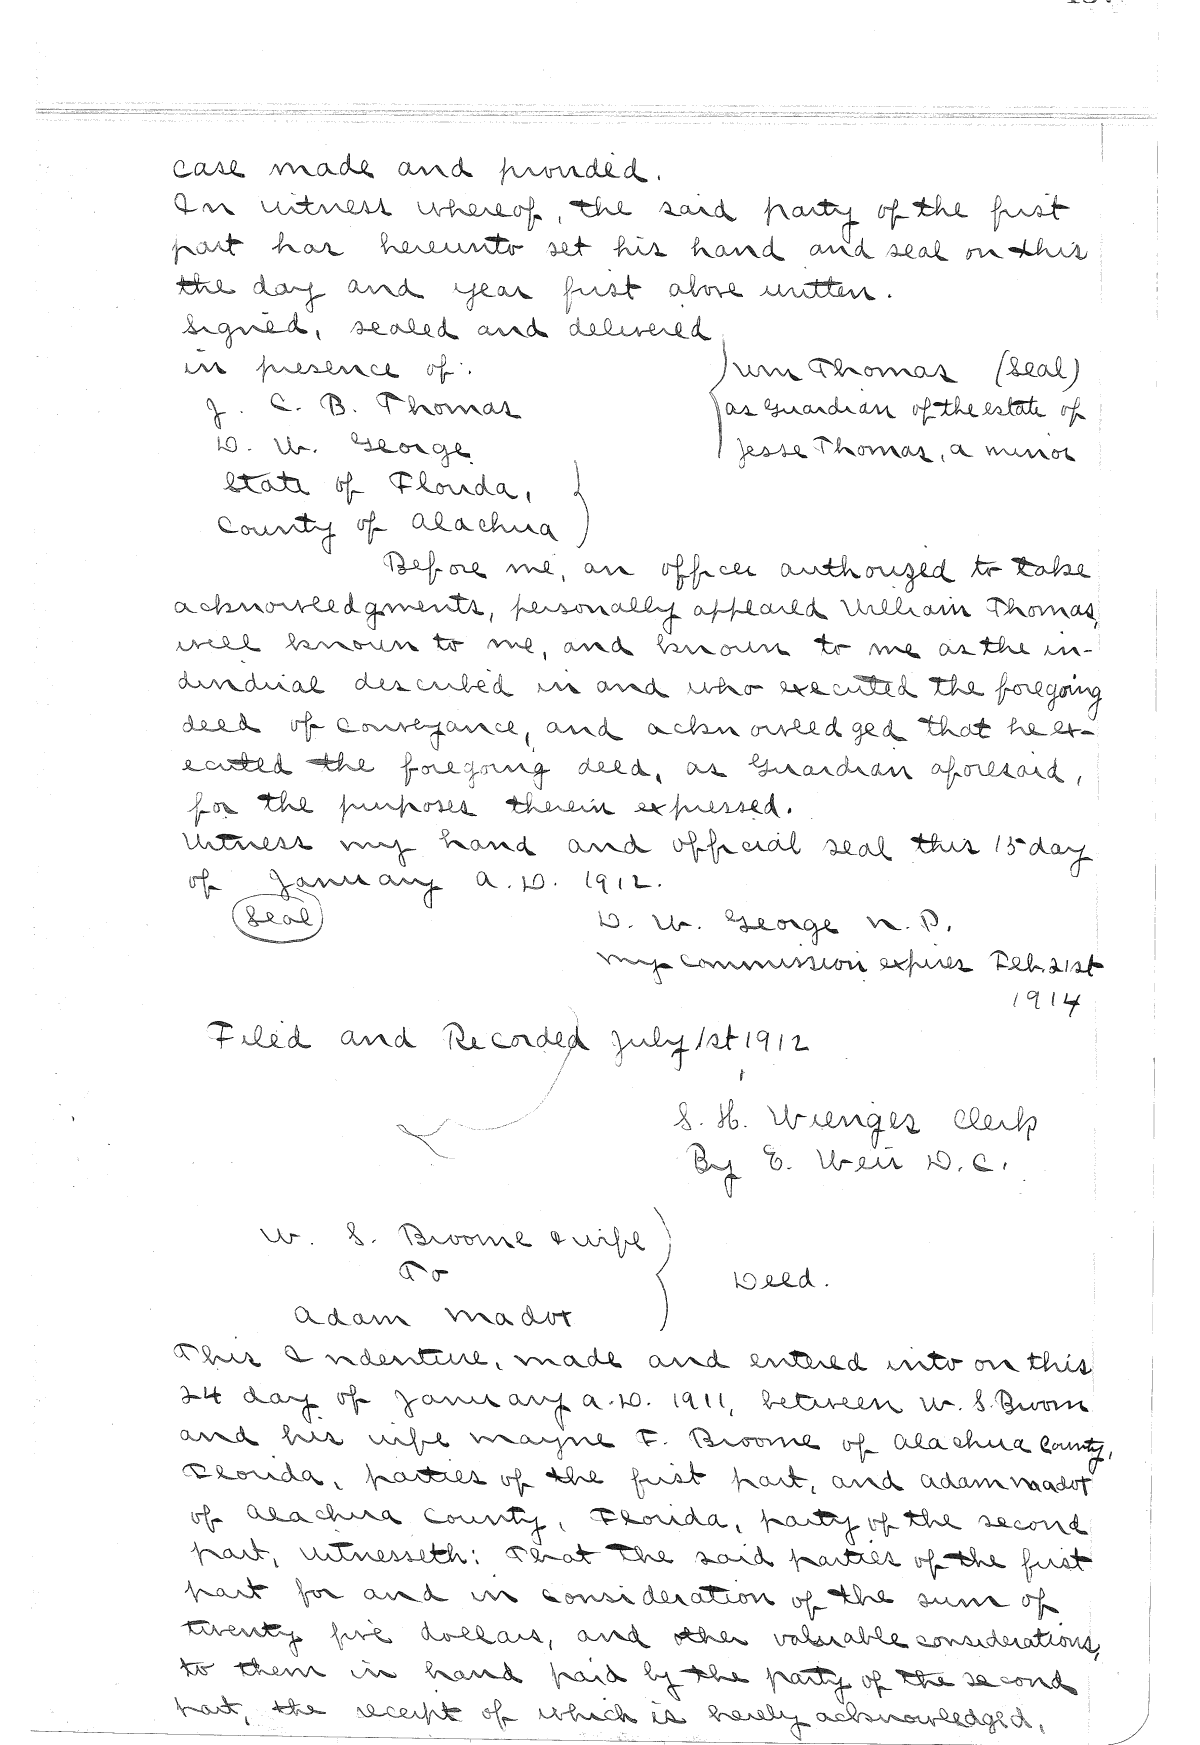 case made and provided.
In witness whereof, the said party of the first
part has hereunto set his hand and seal on this
the day and year first above written.
Signed, sealed and delivered
in presence of:
J. C. B. Thomas
D. W. George
Wm Thomas (Seal)
as Guardian of the estate of
Jesse Thomas, a minor
State of Florida,
County of Alachua
Before me, an officer authorized to take
acknowledgments, personally appeared William Thomas,
well known to me, and known to me as the in-
dividual described in and who executed the foregoing
deed of conveyance, and acknowledged that he ex-
ecuted the foregoing deed, as Guardian aforesaid,
for the purposes therein expressed.
Witness my hand and official seal this 15 day
of January A.D. 1912.
Seal
D. W. George N. P.
My commission expires Feb. 21st
1914
Filed and Recorded July 1st 1912
S. H. Wienges Clerk
By E. Weir D.C.
W. S. Broome & wife
To
Adam Madot
Deed.
This Indenture, made and entered into on this
24 day of January A.D. 1911, between W. S. Broom
and his wife Mayne F. Broome of Alachua County,
Florida, parties of the first part, and Adam Madot
of Alachua County, Florida, party of the second
part, witnesseth: That the said parties of the first
part for and in consideration of the sum of
twenty five dollars, and other valuable considerations,
to them in hand paid by the party of the second
part, the receipt of which is hereby acknowledged,